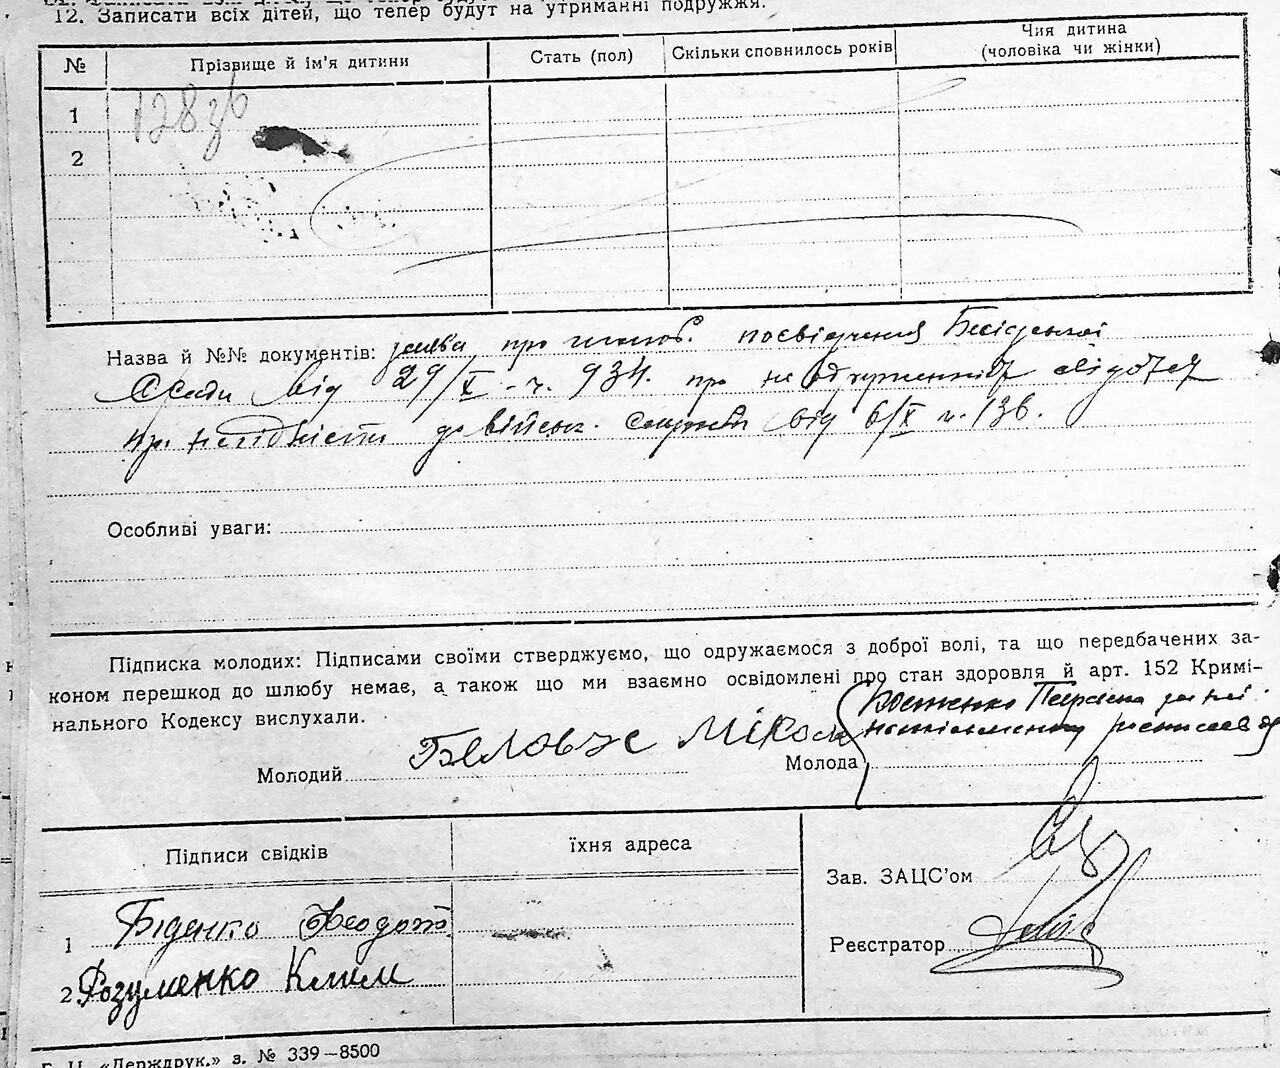 12. Записати всіх дітей, що тепер будут на утриманні подружжя.
№ Прізвище й ім'я дитини Стать (пол) Скільки сповнилось років Чия дитина (чоловіка чи жінки)
128зб
1
2
Назва й №№ документів: заява про шлюб. посвідчення
С/ради від 29/X - ч. 934. про не
про до військ. від 6/X ч. 136.
Особливі уваги:
Підписка молодих: Підписами своїми стверджуємо, що одружаємося з доброї волі, та що передбачених за-
коном перешкод до шлюбу немає, а також що ми взаємно освідомлені про стан здоровля й арт. 152 Кримі-
нального Кодексу вислухали.
Молодий Молода
Підписи свідків їхня адреса
Зав. ЗАЦС'ом
1 Біденко Феодот
Реєстратор
2 Розуменко Клим
«Держдрук.» з. № 339–8500